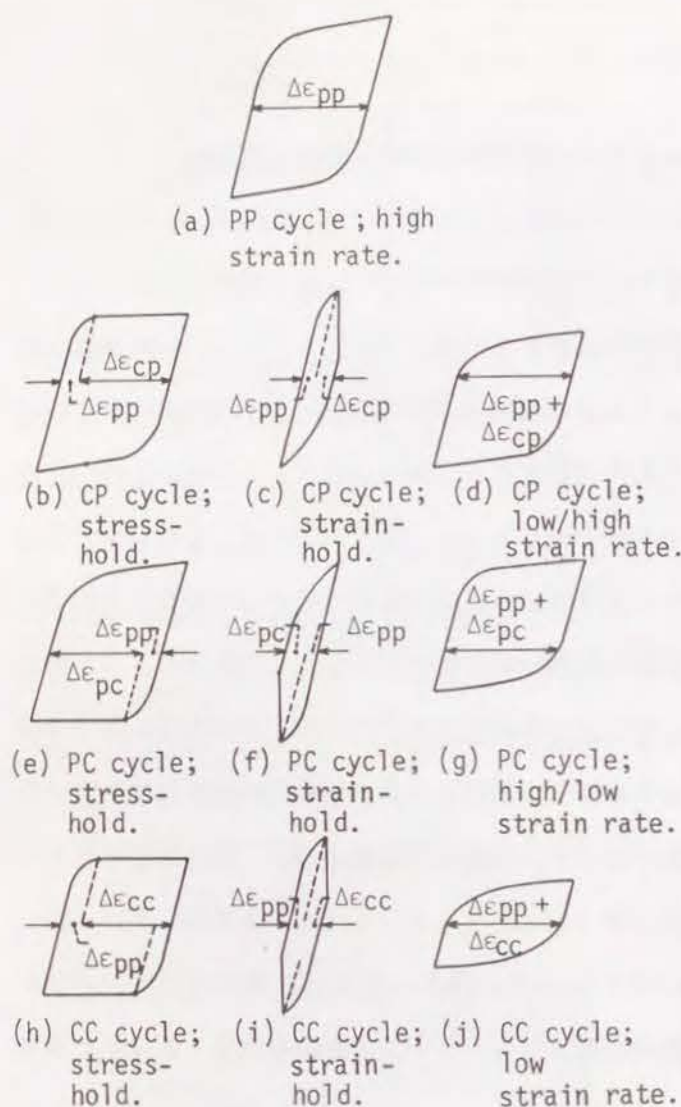 Δεpp
(a) PP cycle ; high
strain rate.
Δεcp
Δεpp
(b) CP cycle;
stress-
hold.
Δεpp
Δεcp
(c) CP cycle;
strain-
hold.
Δεpp +
Δεcp
(d) CP cycle;
low/high
strain rate.
Δεpp
Δεpc
(e) PC cycle;
stress-
hold.
Δεpc
Δεpp
(f) PC cycle;
strain-
hold.
Δεpp +
Δεpc
(g) PC cycle;
high/low
strain rate.
Δεcc
Δεpp
(h) CC cycle;
stress-
hold.
Δεpp
Δεcc
(i) CC cycle;
strain-
hold.
Δεpp +
Δεcc
(j) CC cycle;
low
strain rate.